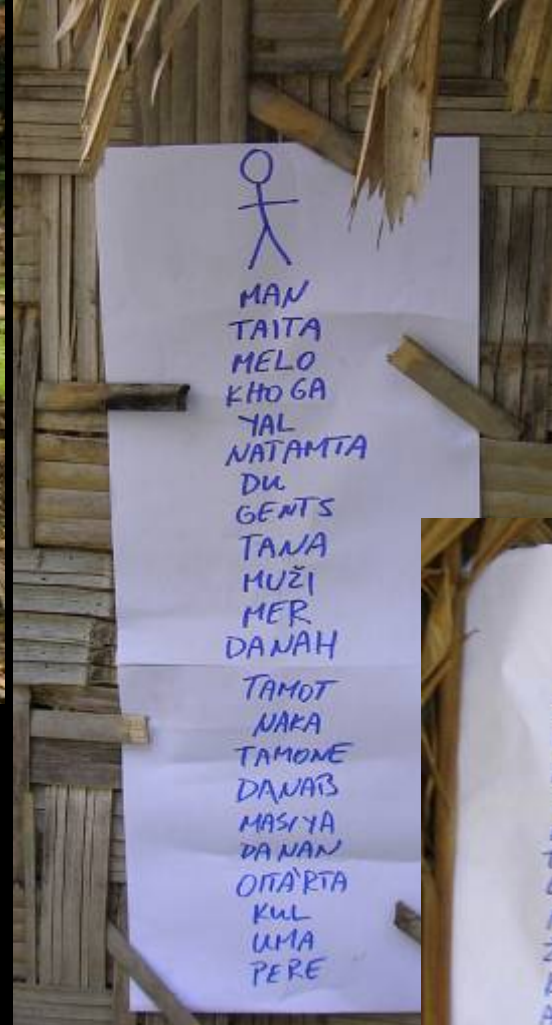 MAN
TAITA
MELO
KHOGA
YAL
NATAMTA
DU
GENTS
TANA
MUŽI
MER
DANAH
TAMOT
NAKA
TAMONE
DANAB
MASIYA
DANAN
KUL
UMA
PERE